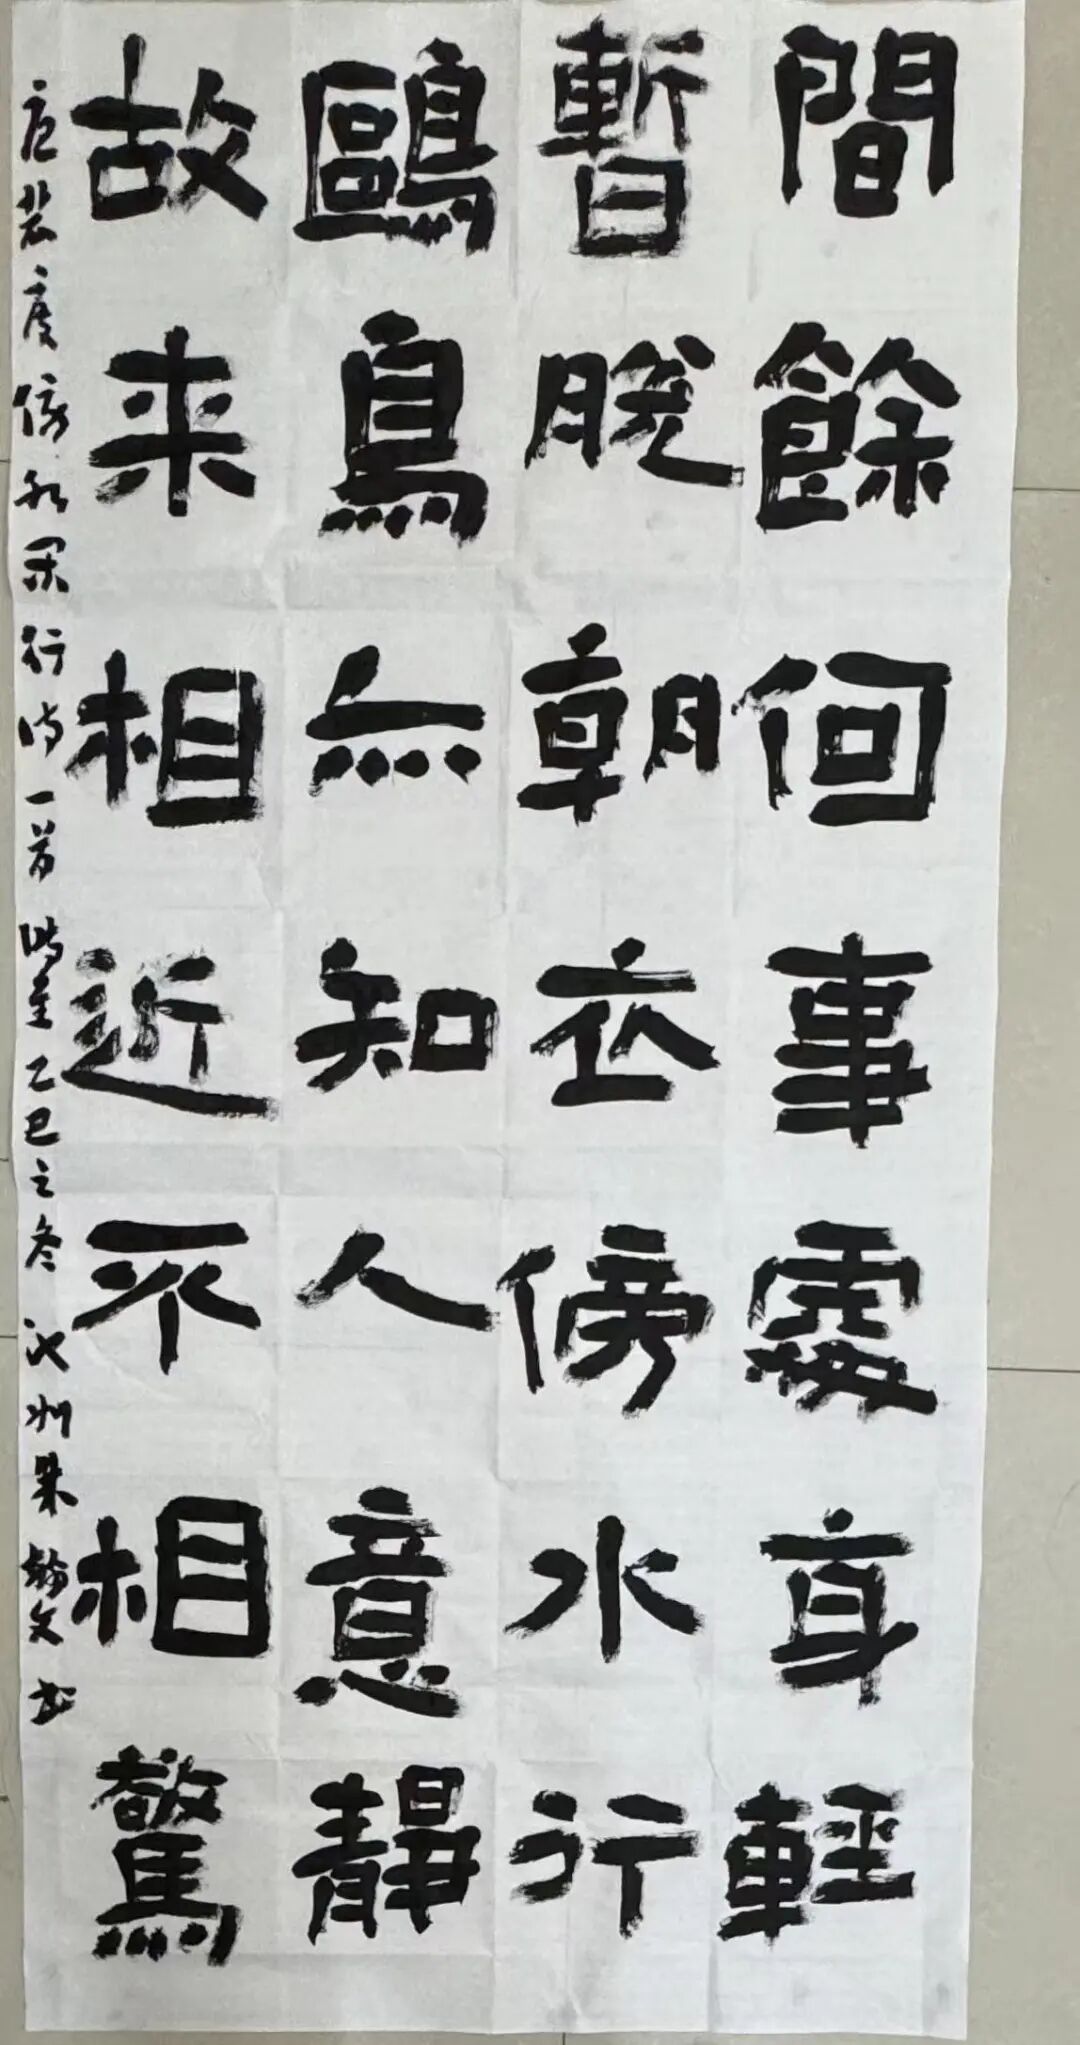 間餘何事處身輕
暫脫朝衣傍水行
鷗鳥亦知人意靜
故来相近不相驚
唐裴度傍水閑行詩一首 時在乙巳之冬 翰文书